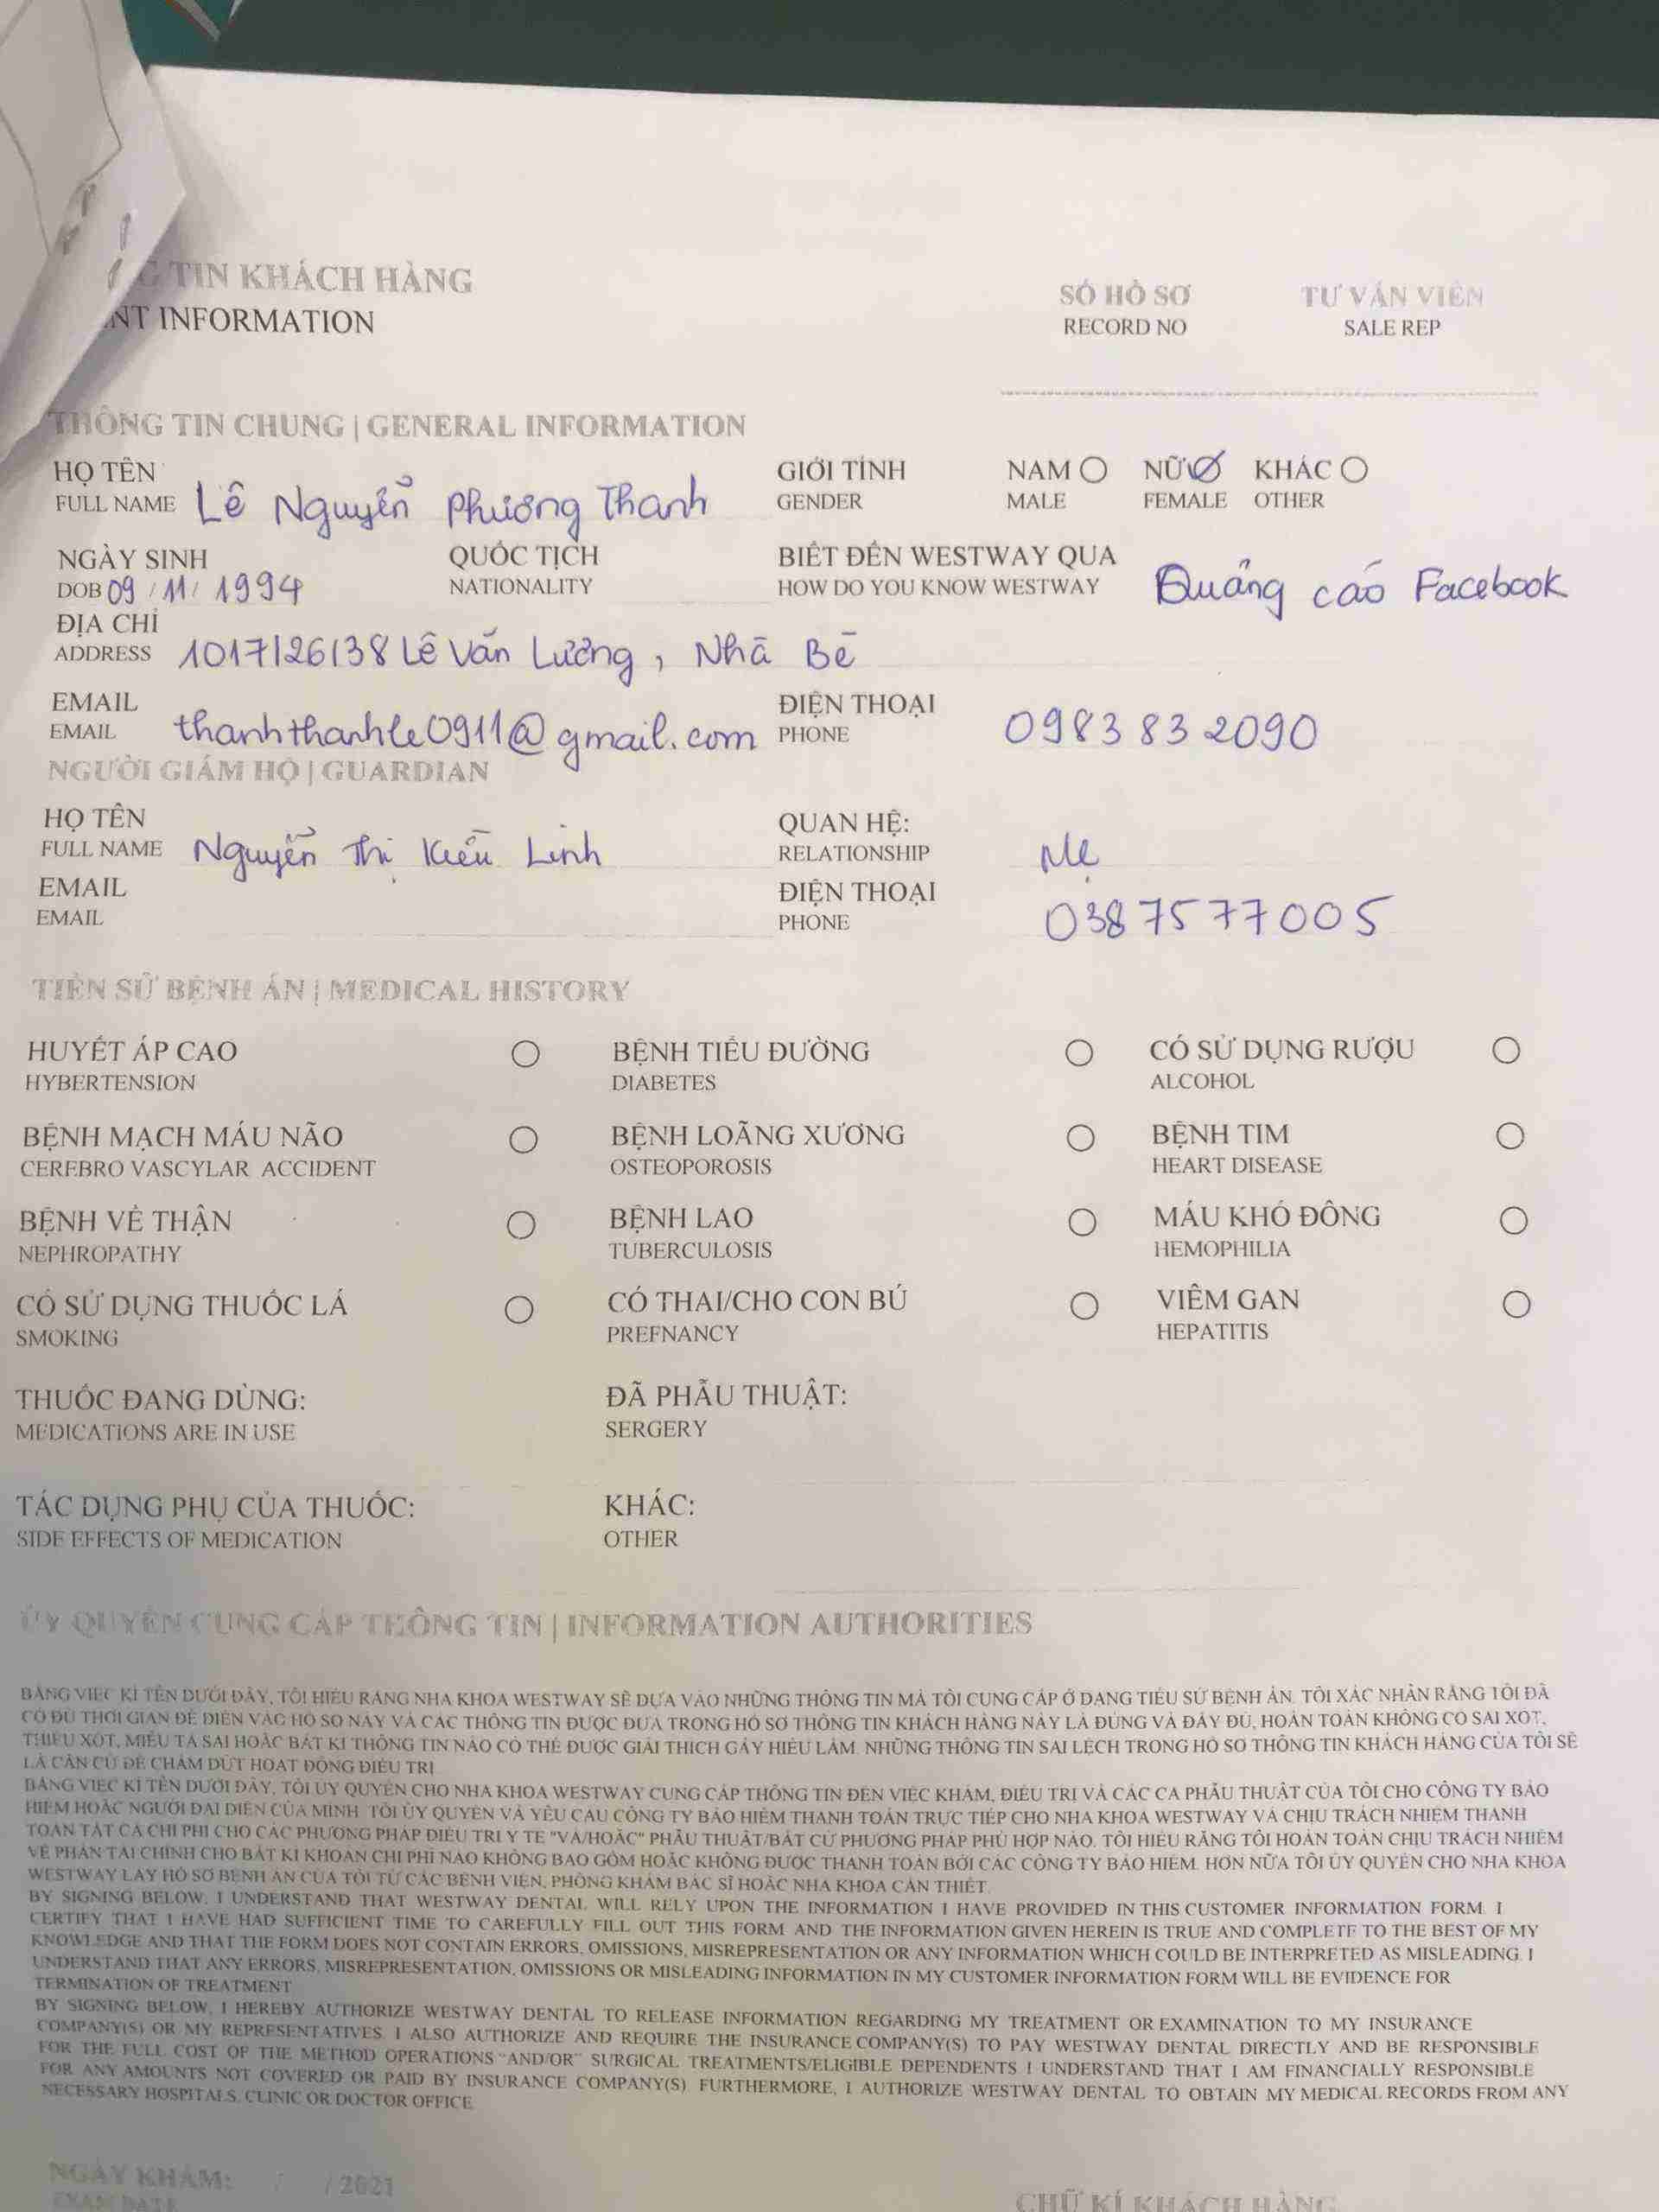 G TIN KHÁCH HÀNG
NT INFORMATION
SỐ HỒ SƠ TƯ VẤN VIÊN
RECORD NO SALE REP
THÔNG TIN CHUNG | GENERAL INFORMATION
HỌ TÊN
FULL NAME Lê Nguyễn Phương Thanh
GIỚI TÍNH NAM NỮ KHÁC
GENDER MALE FEMALE OTHER
NGÀY SINH QUỐC TỊCH BIẾT ĐẾN WESTWAY QUA
DOB 09 / 11 / 1994 NATIONALITY HOW DO YOU KNOW WESTWAY Quảng cáo Facebook
ĐỊA CHỈ
ADDRESS 1017/26/38 Lê Văn Lương, Nhà Bè
EMAIL ĐIỆN THOẠI
EMAIL thanhthanhle0911@gmail.com PHONE 0983 83 2090
NGƯỜI GIÁM HỘ | GUARDIAN
HỌ TÊN QUAN HỆ:
FULL NAME Nguyễn Thị Kiều Linh RELATIONSHIP Mẹ
EMAIL ĐIỆN THOẠI
EMAIL PHONE 0387577005
TIỀN SỬ BỆNH ÁN | MEDICAL HISTORY
HUYẾT ÁP CAO BỆNH TIỂU ĐƯỜNG CÓ SỬ DỤNG RƯỢU
HYBERTENSION DIABETES ALCOHOL
BỆNH MẠCH MÁU NÃO BỆNH LOÃNG XƯƠNG BỆNH TIM
CEREBRO VASCYLAR ACCIDENT OSTEOPOROSIS HEART DISEASE
BỆNH VỀ THẬN BỆNH LAO MÁU KHÓ ĐÔNG
NEPHROPATHY TUBERCULOSIS HEMOPHILIA
CÓ SỬ DỤNG THUỐC LÁ CÓ THAI/CHO CON BÚ VIÊM GAN
SMOKING PREFNANCY HEPATITIS
THUỐC ĐANG DÙNG: ĐÃ PHẪU THUẬT:
MEDICATIONS ARE IN USE SERGERY
TÁC DỤNG PHỤ CỦA THUỐC: KHÁC:
SIDE EFFECTS OF MEDICATION OTHER
ỦY QUYỀN CUNG CẤP THÔNG TIN | INFORMATION AUTHORITIES
BẰNG VIỆC KÍ TÊN DƯỚI ĐÂY, TÔI HIỂU RẰNG NHA KHOA WESTWAY SẼ DỰA VÀO NHỮNG THÔNG TIN MÀ TÔI CUNG CẤP Ở DẠNG TIỂU SỬ BỆNH ÁN. TÔI XÁC NHẬN RẰNG TÔI ĐÃ
CÓ ĐỦ THỜI GIAN ĐỂ ĐIỀN VÀO HỒ SƠ NÀY VÀ CÁC THÔNG TIN ĐƯỢC ĐƯA TRONG HỒ SƠ THÔNG TIN KHÁCH HÀNG NÀY LÀ ĐÚNG VÀ ĐẦY ĐỦ, HOÀN TOÀN KHÔNG CÓ SAI XÓT,
THIẾU XÓT, MIÊU TẢ SAI HOẶC BẤT KÌ THÔNG TIN NÀO CÓ THỂ ĐƯỢC GIẢI THÍCH GÂY HIỂU LẦM. NHỮNG THÔNG TIN SAI LỆCH TRONG HỒ SƠ THÔNG TIN KHÁCH HÀNG CỦA TÔI SẼ
LÀ CĂN CỨ ĐỂ CHẤM DỨT HOẠT ĐỘNG ĐIỀU TRỊ
BẰNG VIỆC KÍ TÊN DƯỚI ĐÂY, TÔI ỦY QUYỀN CHO NHA KHOA WESTWAY CUNG CẤP THÔNG TIN ĐẾN VIỆC KHÁM, ĐIỀU TRỊ VÀ CÁC CA PHẪU THUẬT CỦA TÔI CHO CÔNG TY BẢO
HIỂM HOẶC NGƯỜI ĐẠI DIỆN CỦA MÌNH. TÔI ỦY QUYỀN VÀ YÊU CẦU CÔNG TY BẢO HIỂM THANH TOÁN TRỰC TIẾP CHO NHA KHOA WESTWAY VÀ CHỊU TRÁCH NHIỆM THANH
TOÁN TẤT CẢ CHI PHÍ CHO CÁC PHƯƠNG PHÁP ĐIỀU TRỊ Y TẾ "VÀ/HOẶC" PHẪU THUẬT/BẤT CỨ PHƯƠNG PHÁP PHÙ HỢP NÀO. TÔI HIỂU RẰNG TÔI HOÀN TOÀN CHỊU TRÁCH NHIỆM
VỀ PHẦN TÀI CHÍNH CHO BẤT KÌ KHOẢN CHI PHÍ NÀO KHÔNG BAO GỒM HOẶC KHÔNG ĐƯỢC THANH TOÁN BỞI CÁC CÔNG TY BẢO HIỂM. HƠN NỮA TÔI ỦY QUYỀN CHO NHA KHOA
WESTWAY LẤY HỒ SƠ BỆNH ÁN CỦA TÔI TỪ CÁC BỆNH VIỆN, PHÒNG KHÁM BÁC SĨ HOẶC NHA KHOA CẦN THIẾT.
BY SIGNING BELOW, I UNDERSTAND THAT WESTWAY DENTAL WILL RELY UPON THE INFORMATION I HAVE PROVIDED IN THIS CUSTOMER INFORMATION FORM. I
CERTIFY THAT I HAVE HAD SUFFICIENT TIME TO CAREFULLY FILL OUT THIS FORM AND THE INFORMATION GIVEN HEREIN IS TRUE AND COMPLETE TO THE BEST OF MY
KNOWLEDGE AND THAT THE FORM DOES NOT CONTAIN ERRORS, OMISSIONS, MISREPRESENTATION OR ANY INFORMATION WHICH COULD BE INTERPRETED AS MISLEADING. I
UNDERSTAND THAT ANY ERRORS, MISREPRESENTATION, OMISSIONS OR MISLEADING INFORMATION IN MY CUSTOMER INFORMATION FORM WILL BE EVIDENCE FOR
TERMINATION OF TREATMENT
BY SIGNING BELOW, I HEREBY AUTHORIZE WESTWAY DENTAL TO RELEASE INFORMATION REGARDING MY TREATMENT OR EXAMINATION TO MY INSURANCE
COMPANY(S) OR MY REPRESENTATIVES. I ALSO AUTHORIZE AND REQUIRE THE INSURANCE COMPANY(S) TO PAY WESTWAY DENTAL DIRECTLY AND BE RESPONSIBLE
FOR THE FULL COST OF THE METHOD OPERATIONS "AND/OR" SURGICAL TREATMENTS/ELIGIBLE DEPENDENTS I UNDERSTAND THAT I AM FINANCIALLY RESPONSIBLE
FOR ANY AMOUNTS NOT COVERED OR PAID BY INSURANCE COMPANY(S). FURTHERMORE, I AUTHORIZE WESTWAY DENTAL TO OBTAIN MY MEDICAL RECORDS FROM ANY
NECESSARY HOSPITALS, CLINIC OR DOCTOR OFFICE
NGÀY KHÁM: / /2021
EXAM DATE
CHỮ KÍ KHÁCH HÀNG